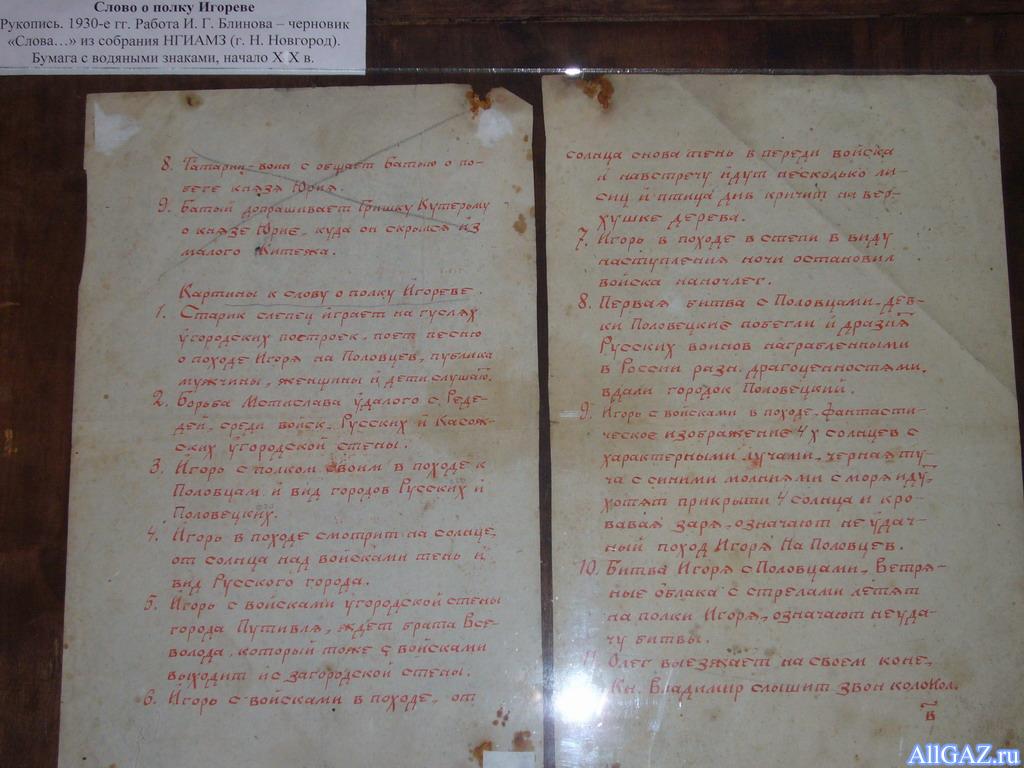 Слово о полку Игореве
Рукопись. 1930-е гг. Работа И. Г. Блинова – черновик
«Слова…» из собрания НГИАМЗ (г. Н. Новгород).
Бумага с водяными знаками, начало XX в.
8. Татарин-воин с общает Батыю о по-
беге князя Юрия.
9. Батый допрашивает Гришку Кутерьму
о князе Юрие, куда он скрылся из
малого Китежа.
Картины к слову о полку Игореве.
1. Старик слепец играет на гуслях
угородских построек, поет песню
о походе Игоря на Половцев, публика
мужчины, женщины и дети слушают.
2. Борьба Мстислава удалого с Реде-
дей, среди войск, Русских и Касож-
ских угородской стены.
3. Игорь с полком своим в походе к
Половцам и вид городов Русских и
Половецких.
4. Игорь в походе смотрит на солнце,
от солнца над войсками тень и
вид Русского города.
5. Игорь с войсками угородской стены
города Путивля, ждет брата Все-
волода, который тоже с войсками
выходит ис загородской стены.
6. Игорь с войсками в походе, от
солнца снова тень в переди войска
и навстречу идут несколько ли-
сиц и птица див кричит на вер-
хушке дерева.
7. Игорь в походе в степи в виду
наступления ночи остановил
войска наночлег.
8. Первая битва с Половцами, дев-
ки Половецкие побегли и дразня
Русских воинов награбленными
в России разн. драгоценностями,
вдали городок Половецкий.
9. Игорь с войсками в походе, фантасти-
ческое изображение 4х солнцев с
характерными лучами, черная ту-
ча с синими молниями с моря идут,
хотят прикрыти 4 солнца и кро-
вавая заря, означают не удач-
ный поход Игоря на Половцев.
10. Битва Игоря с Половцами, Ветря-
ные облака с стрелами летят
на полки Игоря, означают неуда-
чу битвы.
11. Олег выезжает на своем коне,
Кн. Владимир слышит звон колокол.
в
AllGAZ.ru